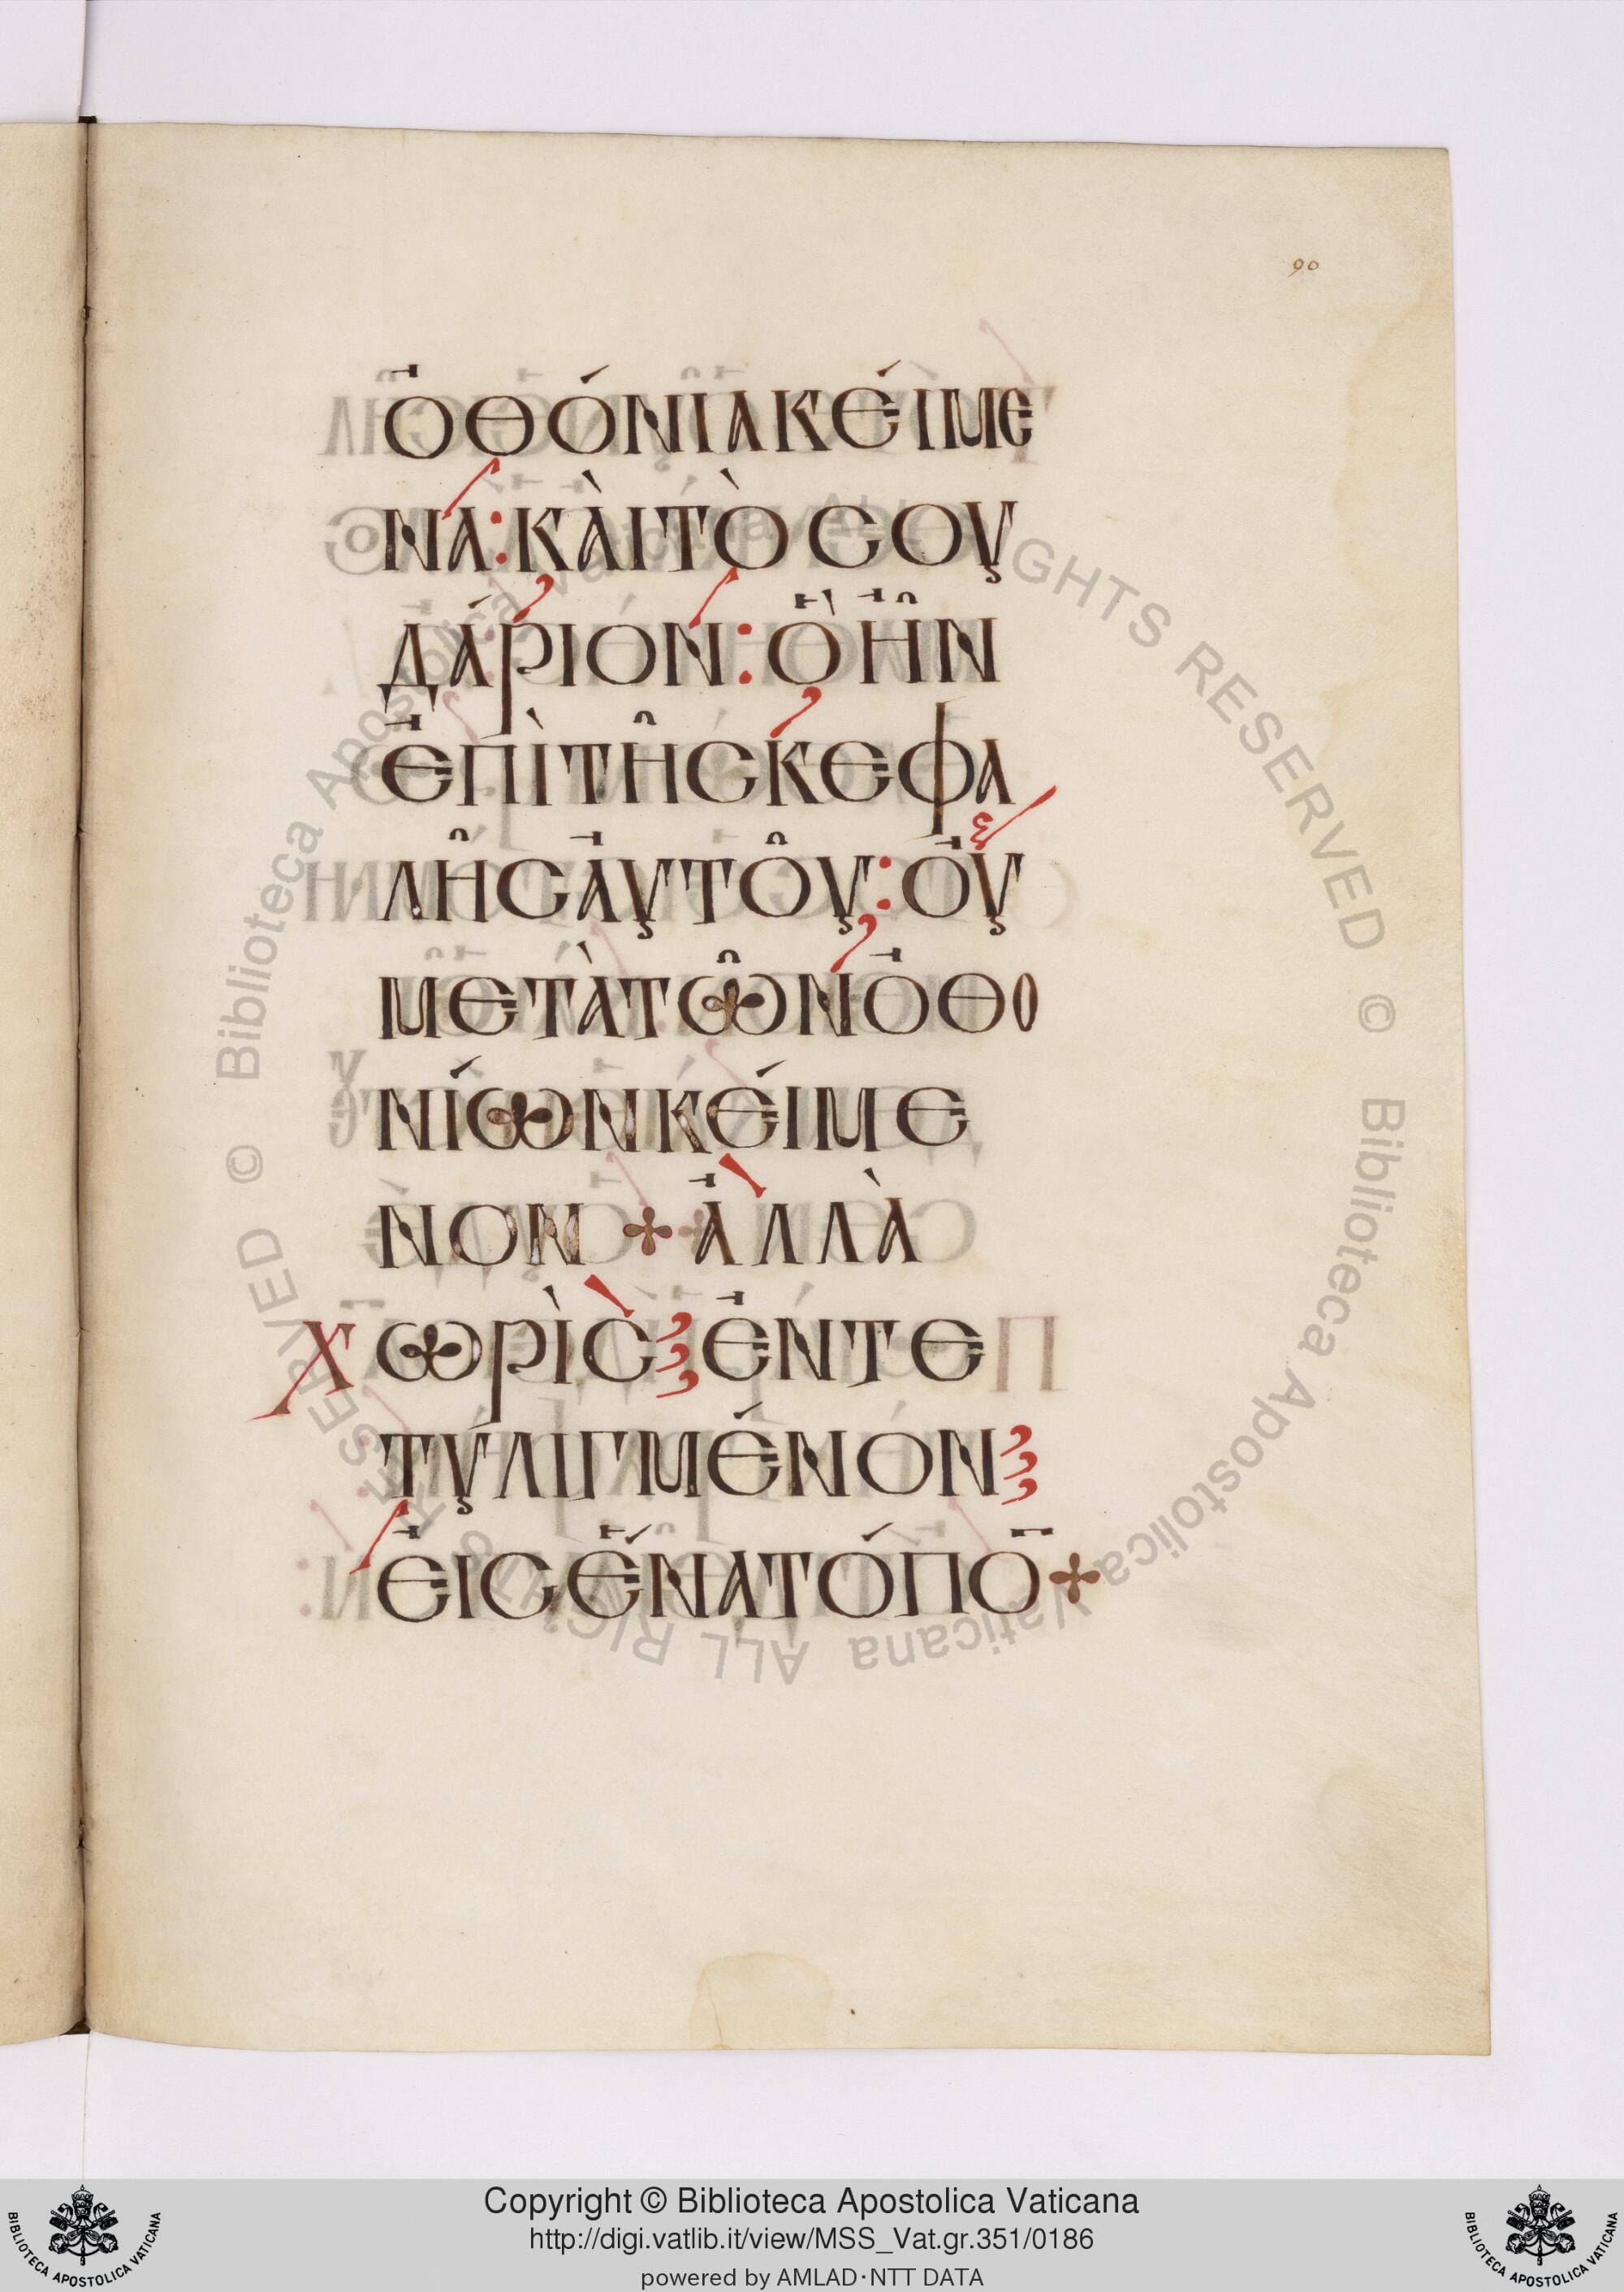 90
ὀθόνια κείμε
να: κὰι τὸ σου
δάριον: ὃ ἦν
ἐπὶ τῆς κεφα
λῆς ἀυτοῦ: οὐ
μετὰ τῶν ὀθο
νίων κέιμε
νον + ἀλλὰ
χωρὶς ἐντε
τυλιγμένον
ἐις ἕνα τόπο̅ +
© Biblioteca Apostolica Vaticana ALL RIGHTS RESERVED © Biblioteca Apostolica Vaticana ALL RIGHTS RESERVED
BIBLIOTECA APOSTOLICA VATICANA
Copyright © Biblioteca Apostolica Vaticana
http://digi.vatlib.it/view/MSS_Vat.gr.351/0186
powered by AMLAD·NTT DATA
BIBLIOTECA APOSTOLICA VATICANA